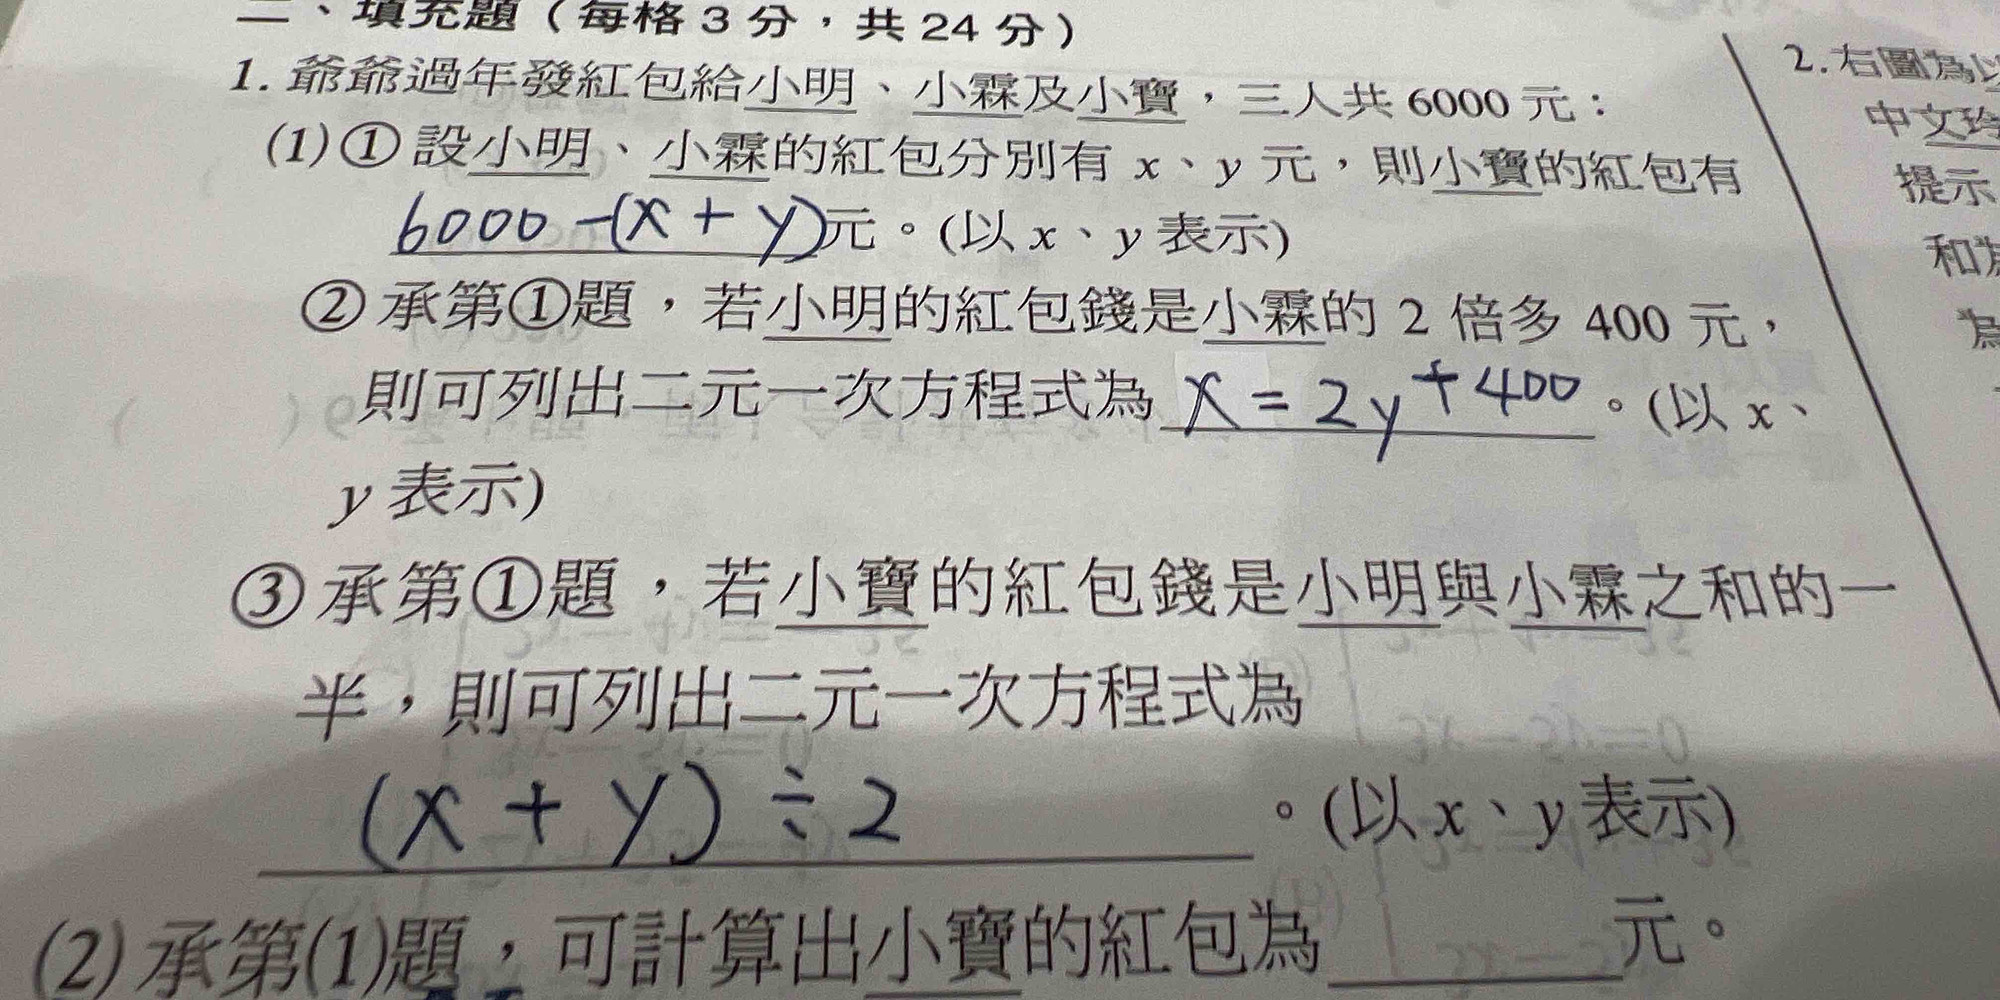 二、填充題（每格3分，共24分）
1. 爺爺過年發紅包給小明、小霖及小寶，三人共6000元：
(1)①設小明、小霖的紅包分別有 x、y 元，則小寶的紅包有
6000-(x+y)元。(以 x、y 表示)
②承第①題，若小明的紅包錢是小霖的 2 倍多 400 元，
則可列出二元一次方程式為 x=2y+400。(以 x、
y 表示)
③承第①題，若小寶的紅包錢是小明與小霖之和的一
半，則可列出二元一次方程式為
(x+y)÷2。(以 x、y 表示)
(2)承第(1)題，可計算出小寶的紅包為______元。
2. 右圖為以
中文玲
提示
和為
為